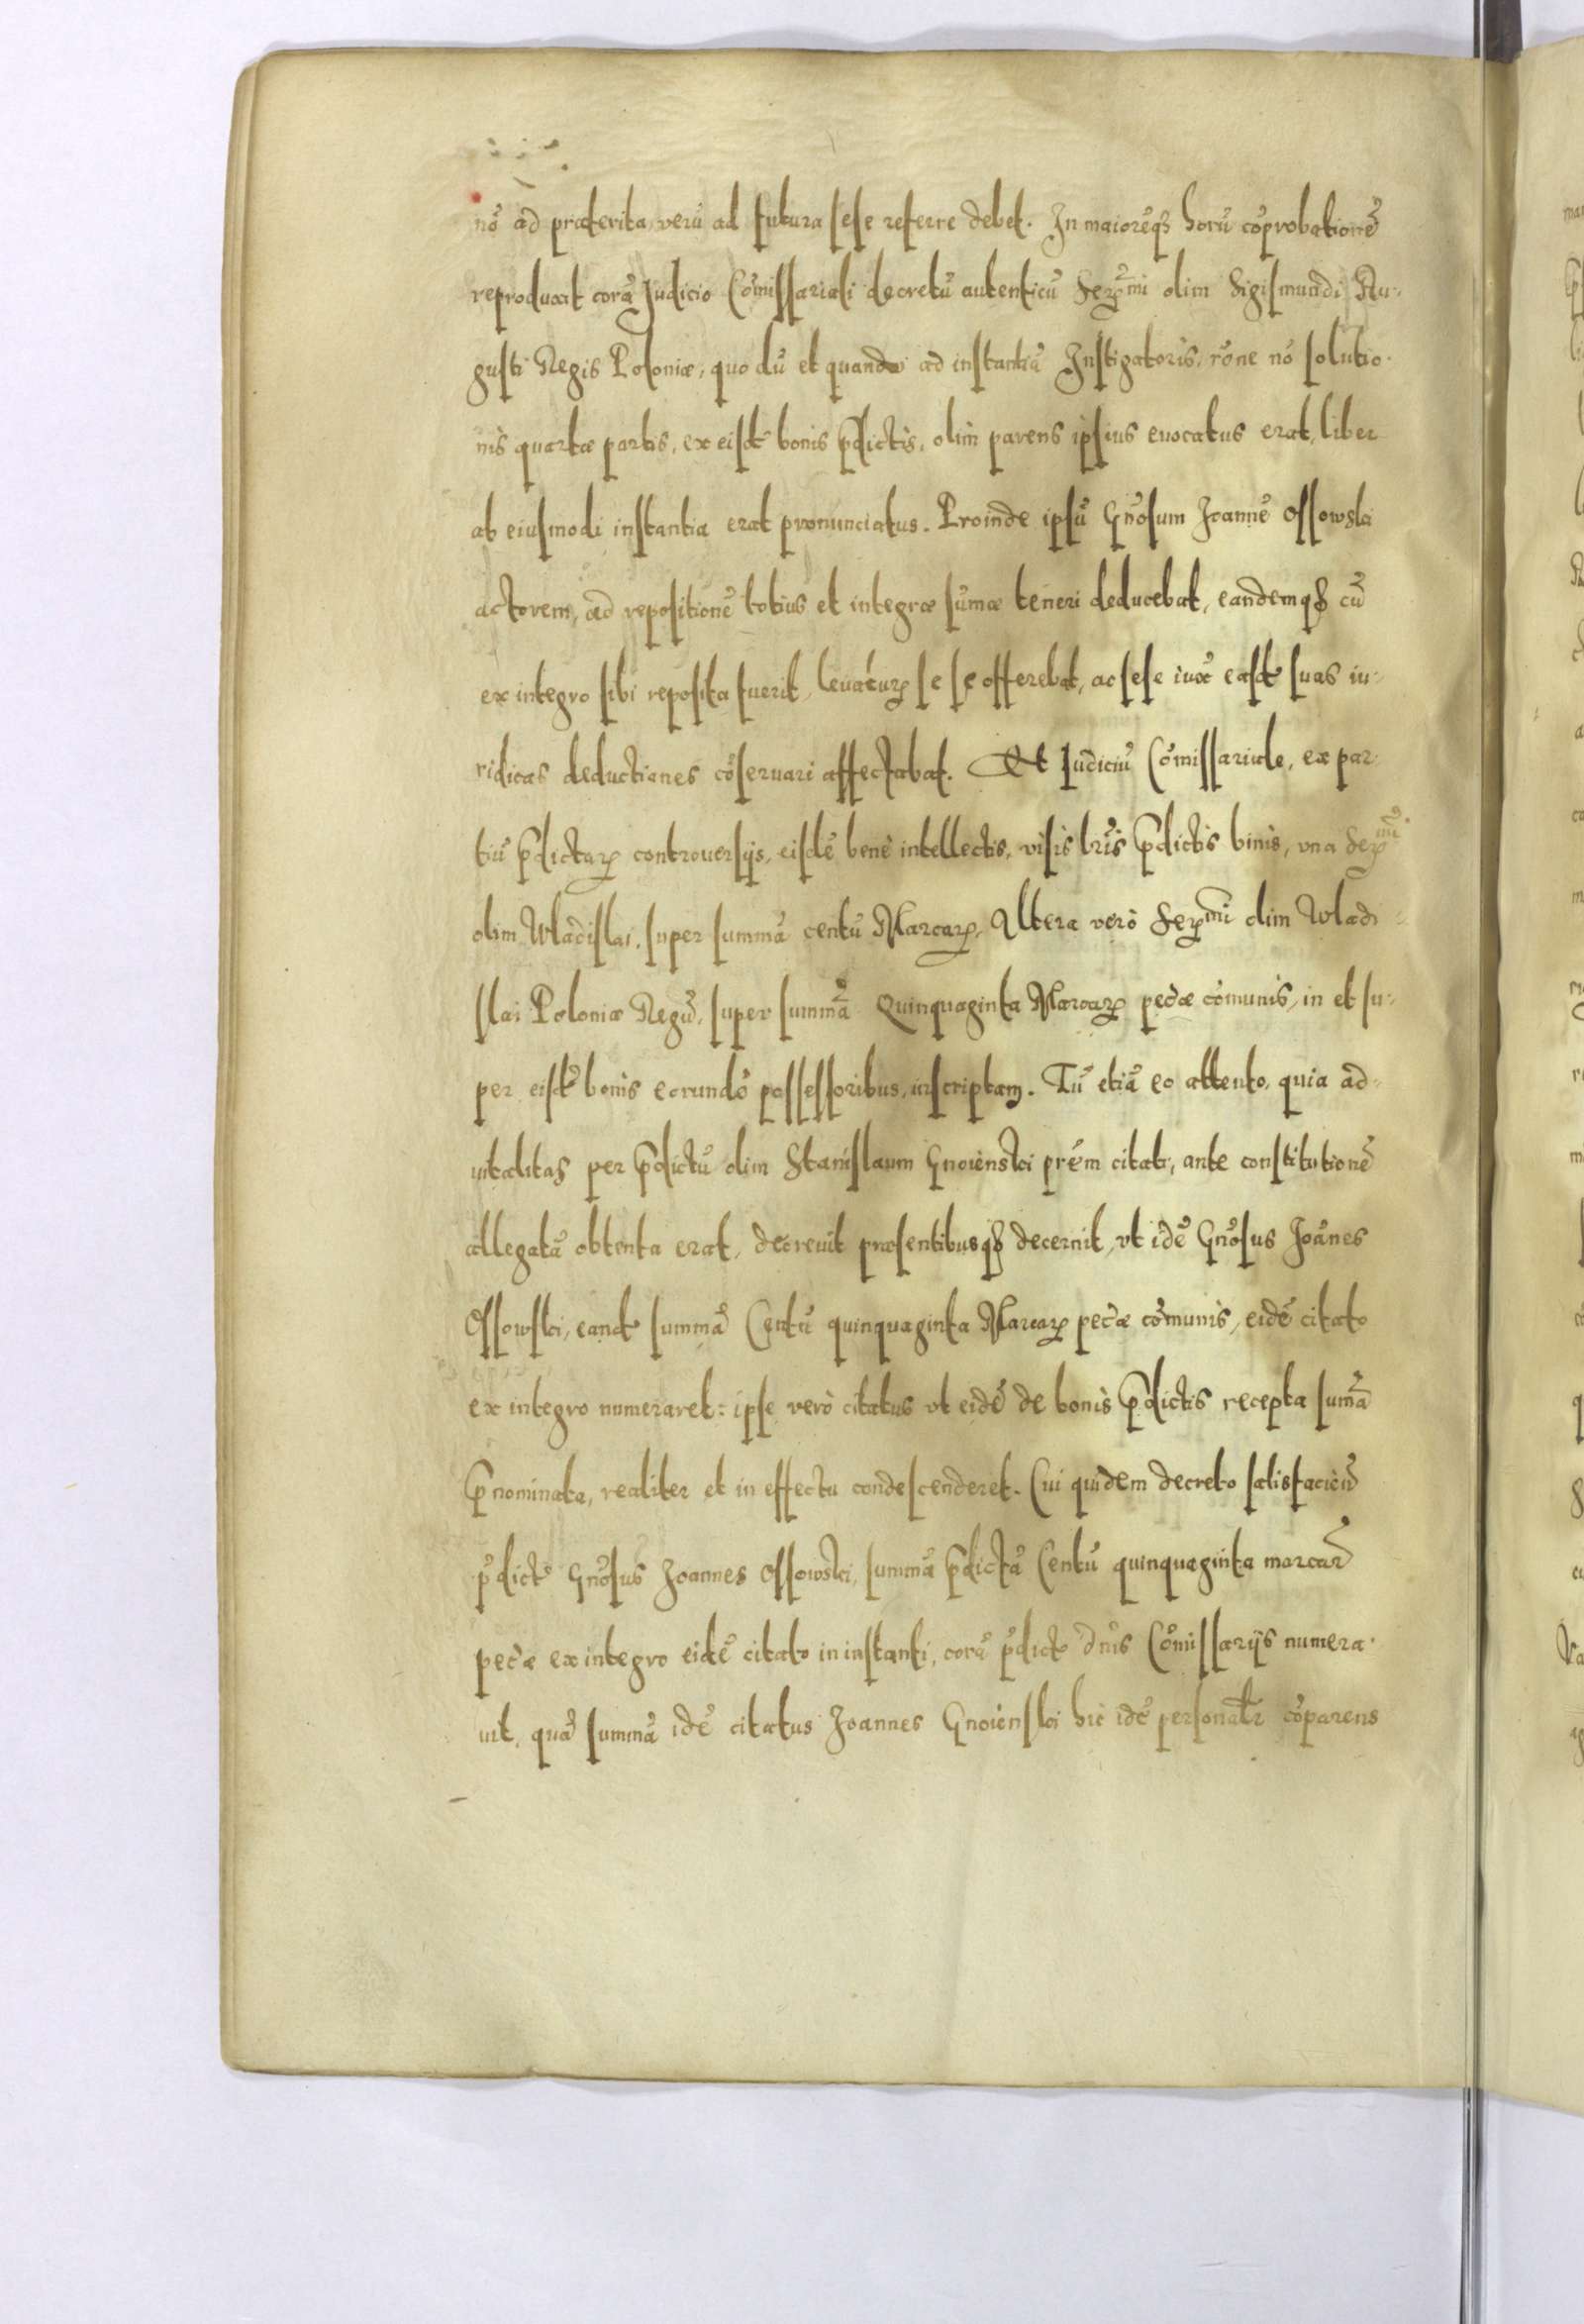 nõ ad præterita, verũ ad futura sese referre debet. In maiorẽq3 horũ cõprobationẽ
reproduxit corã Judicio Cõmissariali decretũ autenticũ Ser̃mi olim Sigismundi Au-
gusti Regis Poloniæ, quo dũ et quando ad instantiã Instigatoris, rõne nõ solutio-
nis quartæ partis, ex eisd̃ bonis p̃dictis, olim parens ipsius euocatus erat, liber
ab eiusmodi instantia erat pronunciatus. Proinde ipsũ Gñosum Joannẽ Ossowski
actorem, ad repositionẽ totius et integræ sũmæ teneri deducebat, eandemq3 cũ
ex integro sibi reposita fuerit, leuaturꝝ se se offerebat, ac sese iux̃ easd̃ suas iu-
ridicas deductiones cõseruari affectabat. Et Iudiciũ Cõmissariale, ex par-
tiũ p̃dictaꝝ controuersijs, eisdẽ benè intellectis, visis lr̃is p̃dictis binis, vna Ser̃mi
olim Wladislai, super summã centũ Marcaꝝ, Altera verò Ser̃mi olim Wladi-
slai Poloniæ Regũ, super summã Quinquaginta Marcaꝝ pec̃æ cõmunis, in et su-
per eisd̃ bonis eorundẽ possessoribus, inscriptam. Tũ etiã eo attento, quia ad-
uitalitas per p̃dictũ olim Stanislaum Gnoienski pr̃em citati, ante constitutionẽ
allegatã obtenta erat, decreuit præsentibusq3 decernit, vt idẽ Gñosus Joãnes
Ossowski, eand̃ summã Centũ quinquaginta Marcaꝝ pec̃æ cõmunis, eidẽ citato
ex integro numeraret: ipse verò citatus vt eidẽ de bonis p̃dictis recepta sũmã
p̃nominata, realiter et in effectu condescenderet. Cui quidem decreto satisfaciẽd
p̃dict̃ Gñosus Joannes Ossowski, summã p̃dictã Centũ quinquaginta marcar̃
pec̃æ ex integro eidẽ citato in instanti, corã p̃dict̃ dñis Cõmissarijs numera-
uit, quã summã idẽ citatus Joannes Gnoienski hic idẽ personalr̃ cõparens